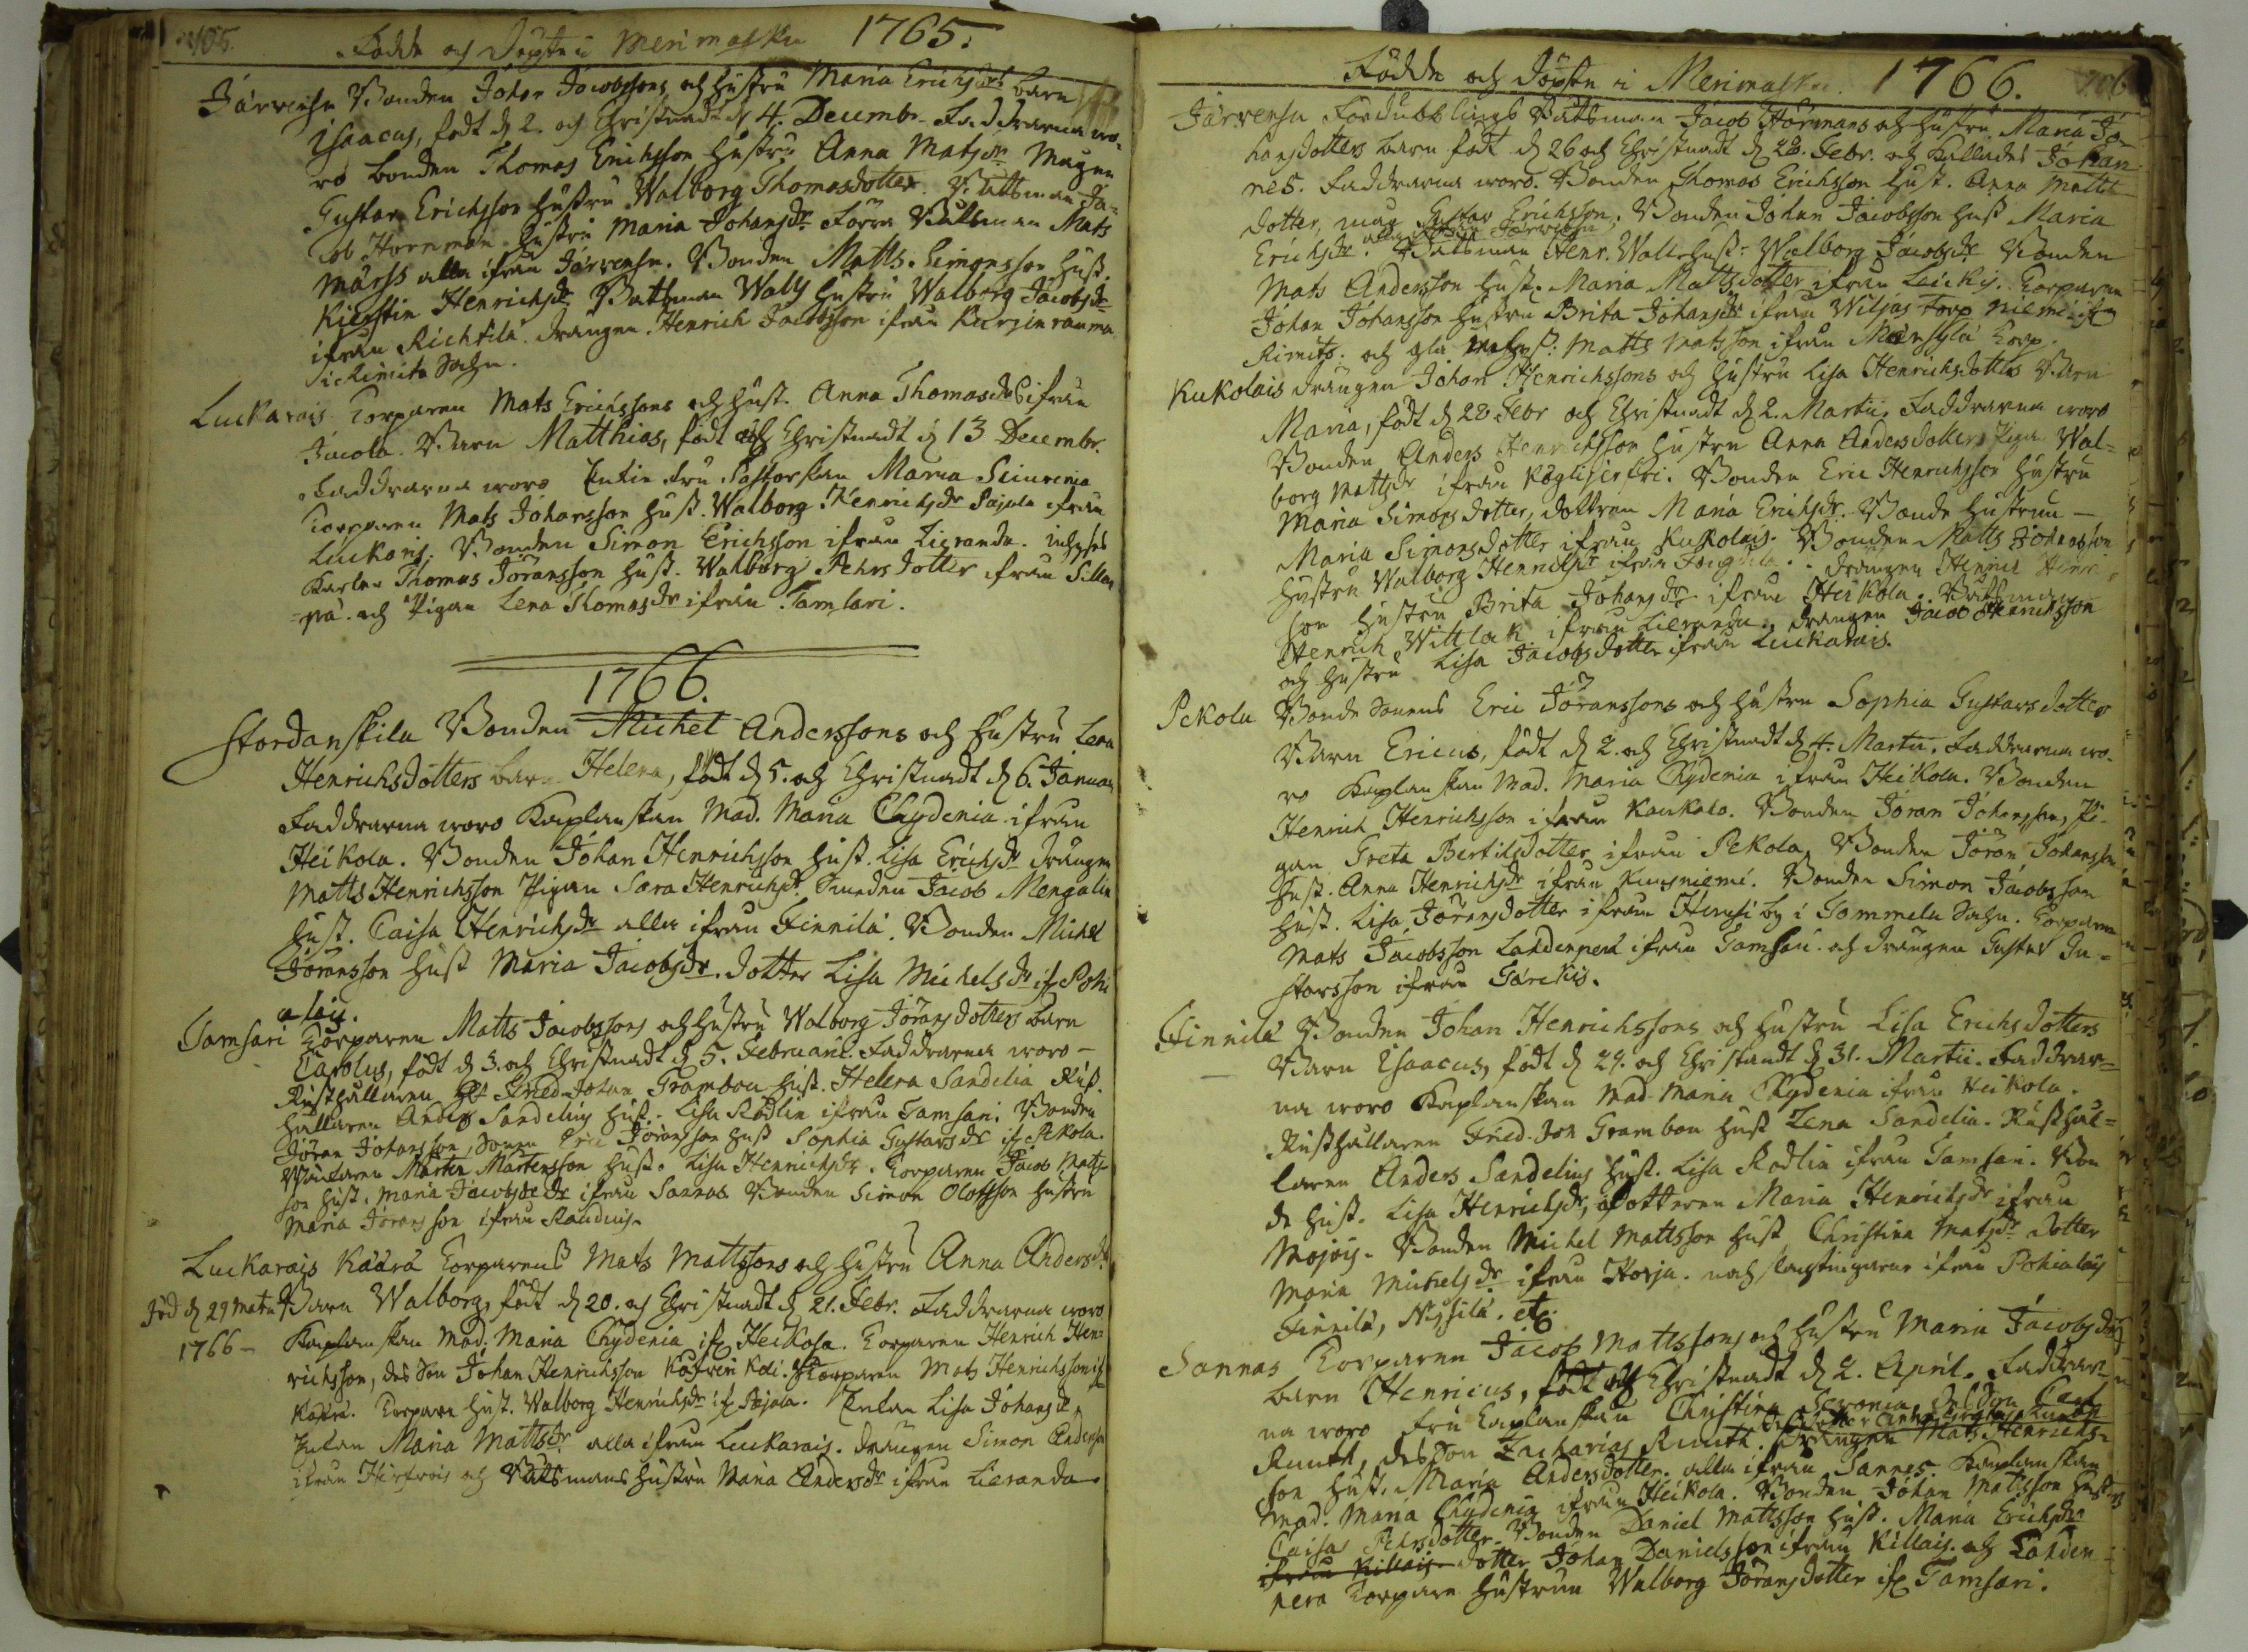 405.
Födde och Döpte i Merimasku 1765.
Järvensu Bonden Johan Jacobssons och hustru Maria Erichsdrs barn
Isaacus, födt d. 2. och Christnadt d. 4. Decembr. Faddrarna wo-
ro bonden Thomas Erichsson hustru Anna Matsdr Mågen
Gustav Erichsson hustru Walborg Thomasdotter. Båttsman Ja-
cob Hornman hustru Maria Johansdr. Förra Båttsman Mats
Märss alla ifrån Järvensu. Bonden Matts Simonsson hust.
Kierstin Henrichsdr Båttsman Wally hustru Walborg Jacobsdr
ifrån Richtilä. drängen Henrich Jacobsson ifrån Kurjenrauma
i Rimito Sochn.
Luckarais Torparen Mats Erichssons och hust. Anna Thomasdrs ifrån
Jacola. Barn Matthias, födt och Christnadt d. 13 Decembr.
Faddrarna woro Enkie fru Pastorskan Maria Sciurenia
Torparen Mats Johansson hust. Walborg Henrichsdr Pajala ifrån
Luckaris. Bonden Simon Erichsson ifrån Lieranda. inhyses
Karlen Thomas Jöransson hust. Walborg Pehrsdotter ifrån Sillan-
pä. och Pigan Lena Thomasdr ifrån Tamsari.
1766.
Stordanskila Bonden Michel Anderssons och hustru Lena
Henrichsdotters barn Helena, födt d. 5. och Christnadt d. 6. Januari
Faddrarna woro Kaplanskan Mad. Maria Chydenia ifrån
Heikola. Bonden Johan Henrichsson hust. Lisa Erichsdr drängen
Matts Henrichsson Pigan Sara Henrichsdr Smeden Jacob Mengalin
hust. Caisa Henrichsdr alla ifrån Finnilä. Bonden Michel
Jöransson hust Maria Jacobsdr. dotter Lisa Michelsdr if. Pohi
alais.
Tamsari Torparen Matts Jacobssons och hustru Walborg Jöransdotters barn
Carolus, födt d. 3. och Christnadt d. 5. Februarii. Faddrarna woro
Rusthållaren Hr Fried. Johan Grambou hust. Helena Sandelia Rust-
hållaren Anders Sandelius hust. Lisa Rodlin ifrån Tamsari Bonden
Jöran Johansson, Sonen Eric Jöransson hust Sophia Gustavsdr if. Pekola.
Mårten Mårtensson hust. Lisa Henrichsdr. Torparen Jacob Mats-
son hust. Maria Jacobsdr ifrån Sannas Bonden Simon Olofsson hustru
Maria Jöransson ifrån Rauduis.
Luckarais Käärä Torparens Mats Mattssons och hustru Anna Andersdrs
död d. 29 Martii Barn Walborg, födt d. 20. och Christnadt d. 21. Febr. Faddrarna woro
1766 – Kaplanskan Mad. Maria Chydenia if. Heikola. Torparen Henrich Hen-
richsson, des Son Johan Henrichsson Torparen Mats Henrichsson if.
Käärä. Torpare hust. Walborg Henrichsdr if. Pajala. Enkan Lisa Johansdr
Enkan Maria Mattsdr alla ifrån Luckarais. drängen Simon Andersson
ifrån och Båtsmans hustru Maria Andersdr ifrån Lieranda
406
Födde och Döpte i Merimasku. 1766.
Järvensu Fördubblings Båttsman Jacob Hörnmans och hustru Maria Jo-
hansdotters barn födt d. 26 och Christnadt d. 28. Febr. och kallades Johan-
nes. Faddrarna woro. Bonden Thomas Erichsson hust. Anna Matts
dotter, måg Gustav Erichsson, Bonden Johan Jacobsson hust Maria
alla ifrån Järvensu
Erichsdr. Båtsman Henr. Wall hust: Walborg Jacobsdr Bonden
Mats Andersson hust. Maria Mattsdotter ifrån Torparen
Johan Johansson hustru Brita Johansdr ifrån Wiljas Torp Niemi if.
Rimito. och Matts Matsson ifrån Mänsylä Torp.
Kukolais drängen Johan Henrichssons och hustru Lisa Henrichsdotters Barn
Maria, födt d. 28 Febr och Christnadt d. 2. Martii. Faddrarna woro
Bonden Anders Henrichsson hustru Anna Andersdotter Pigan Wal-
borg Mattsdr ifrån Bonden Eric Henrichsson hustru
Maria Simonsdotter, dottren Maria Erichsdr. Bonde hustrun –
Maria Simonsdotter ifrån Kukolais. Bonden Matts Johansson
hustru Walborg Henrichsdr ifrån drängen Henric Henric-
son hustru Brita Johansdr ifrån Heikola. Båttsman
Henrich Wittlak ifrån Lieranda. drängen Jacob Henrichsson
och hustru Lisa Jacobsdotter ifrån Luckarais.
Pekola Bonde Sonens Eric Jöranssons och hustru Sophia Gustavsdotter
Barn Ericus, födt d. 2. och Christnadt d. 4. Martii. Faddrarna wo-
ro Kaplanskan Mad. Maria Chydenia ifrån Heikola. Bonden
Henrich Henrichsson ifrån Kaukalo. Bonden Jöran Johansson, Pi-
gan Greta Bertilsdotter ifrån Pekola, Bonden Jöran Johansson
hust. Anna Henrichsdr ifrån Kuusniemi. Bonden Simon Jacobsson
hust. Lisa Jöransdotter ifrån by i Gommela Sochn. Torparen
Mats Jacobsson Lahdenperä ifrån Tamsari och drängen Gustav Gu-
stavsson ifrån Särckis.
Finnilä Bonden Johan Henrichssons och hustru Lisa Erichsdotters
Barn Isaacus, födt d. 29. och Christnadt d. 31. Martii. Faddrar-
na woro Kaplanskan Mad. Maria Chydenia ifrån Heikola.
Rusthållaren Fried. Joh Grambou hust Lena Sandelia. Rusthål-
laren Anders Sandelius hust. Lisa Rodlin ifrån Tamsari. Bon
de hust. Lisa Henrichsdr, dotteren Maria Henrichsdr ifrån
Mojois. Bonden Michel Mattsson hust Christina Matsdr Dotter
Maria Michelsdr ifrån Korja. och ifrån Pohialais
Finnilä, Nissilä. etc.
Sannas Torparen Jacob Mattssons och hustru Maria Jacobsdrs
barn Henricus, födt och Christnadt d. 2. April. Faddrar-
na woro fru Caplanskan Christina des Son Carl
Ruuth, des Son Zacharias Ruuth. drängen Mats Henrichs-
son hust. Maria Andersdotter. alla ifrån Sannas. Kaplanskan
Mad. Maria Chydenia ifrån Heikola. Bonden Johan Mattsson hust
Caisa Pehrsdotter. Bonden Daniel Mattsson hust. Maria Erichsdr
ifrån Killais dotter Johan Danielsson ifrån Killais. och Lahden-
pera Torpare hustrun Walborg Jöransdotter if. Tamsari.